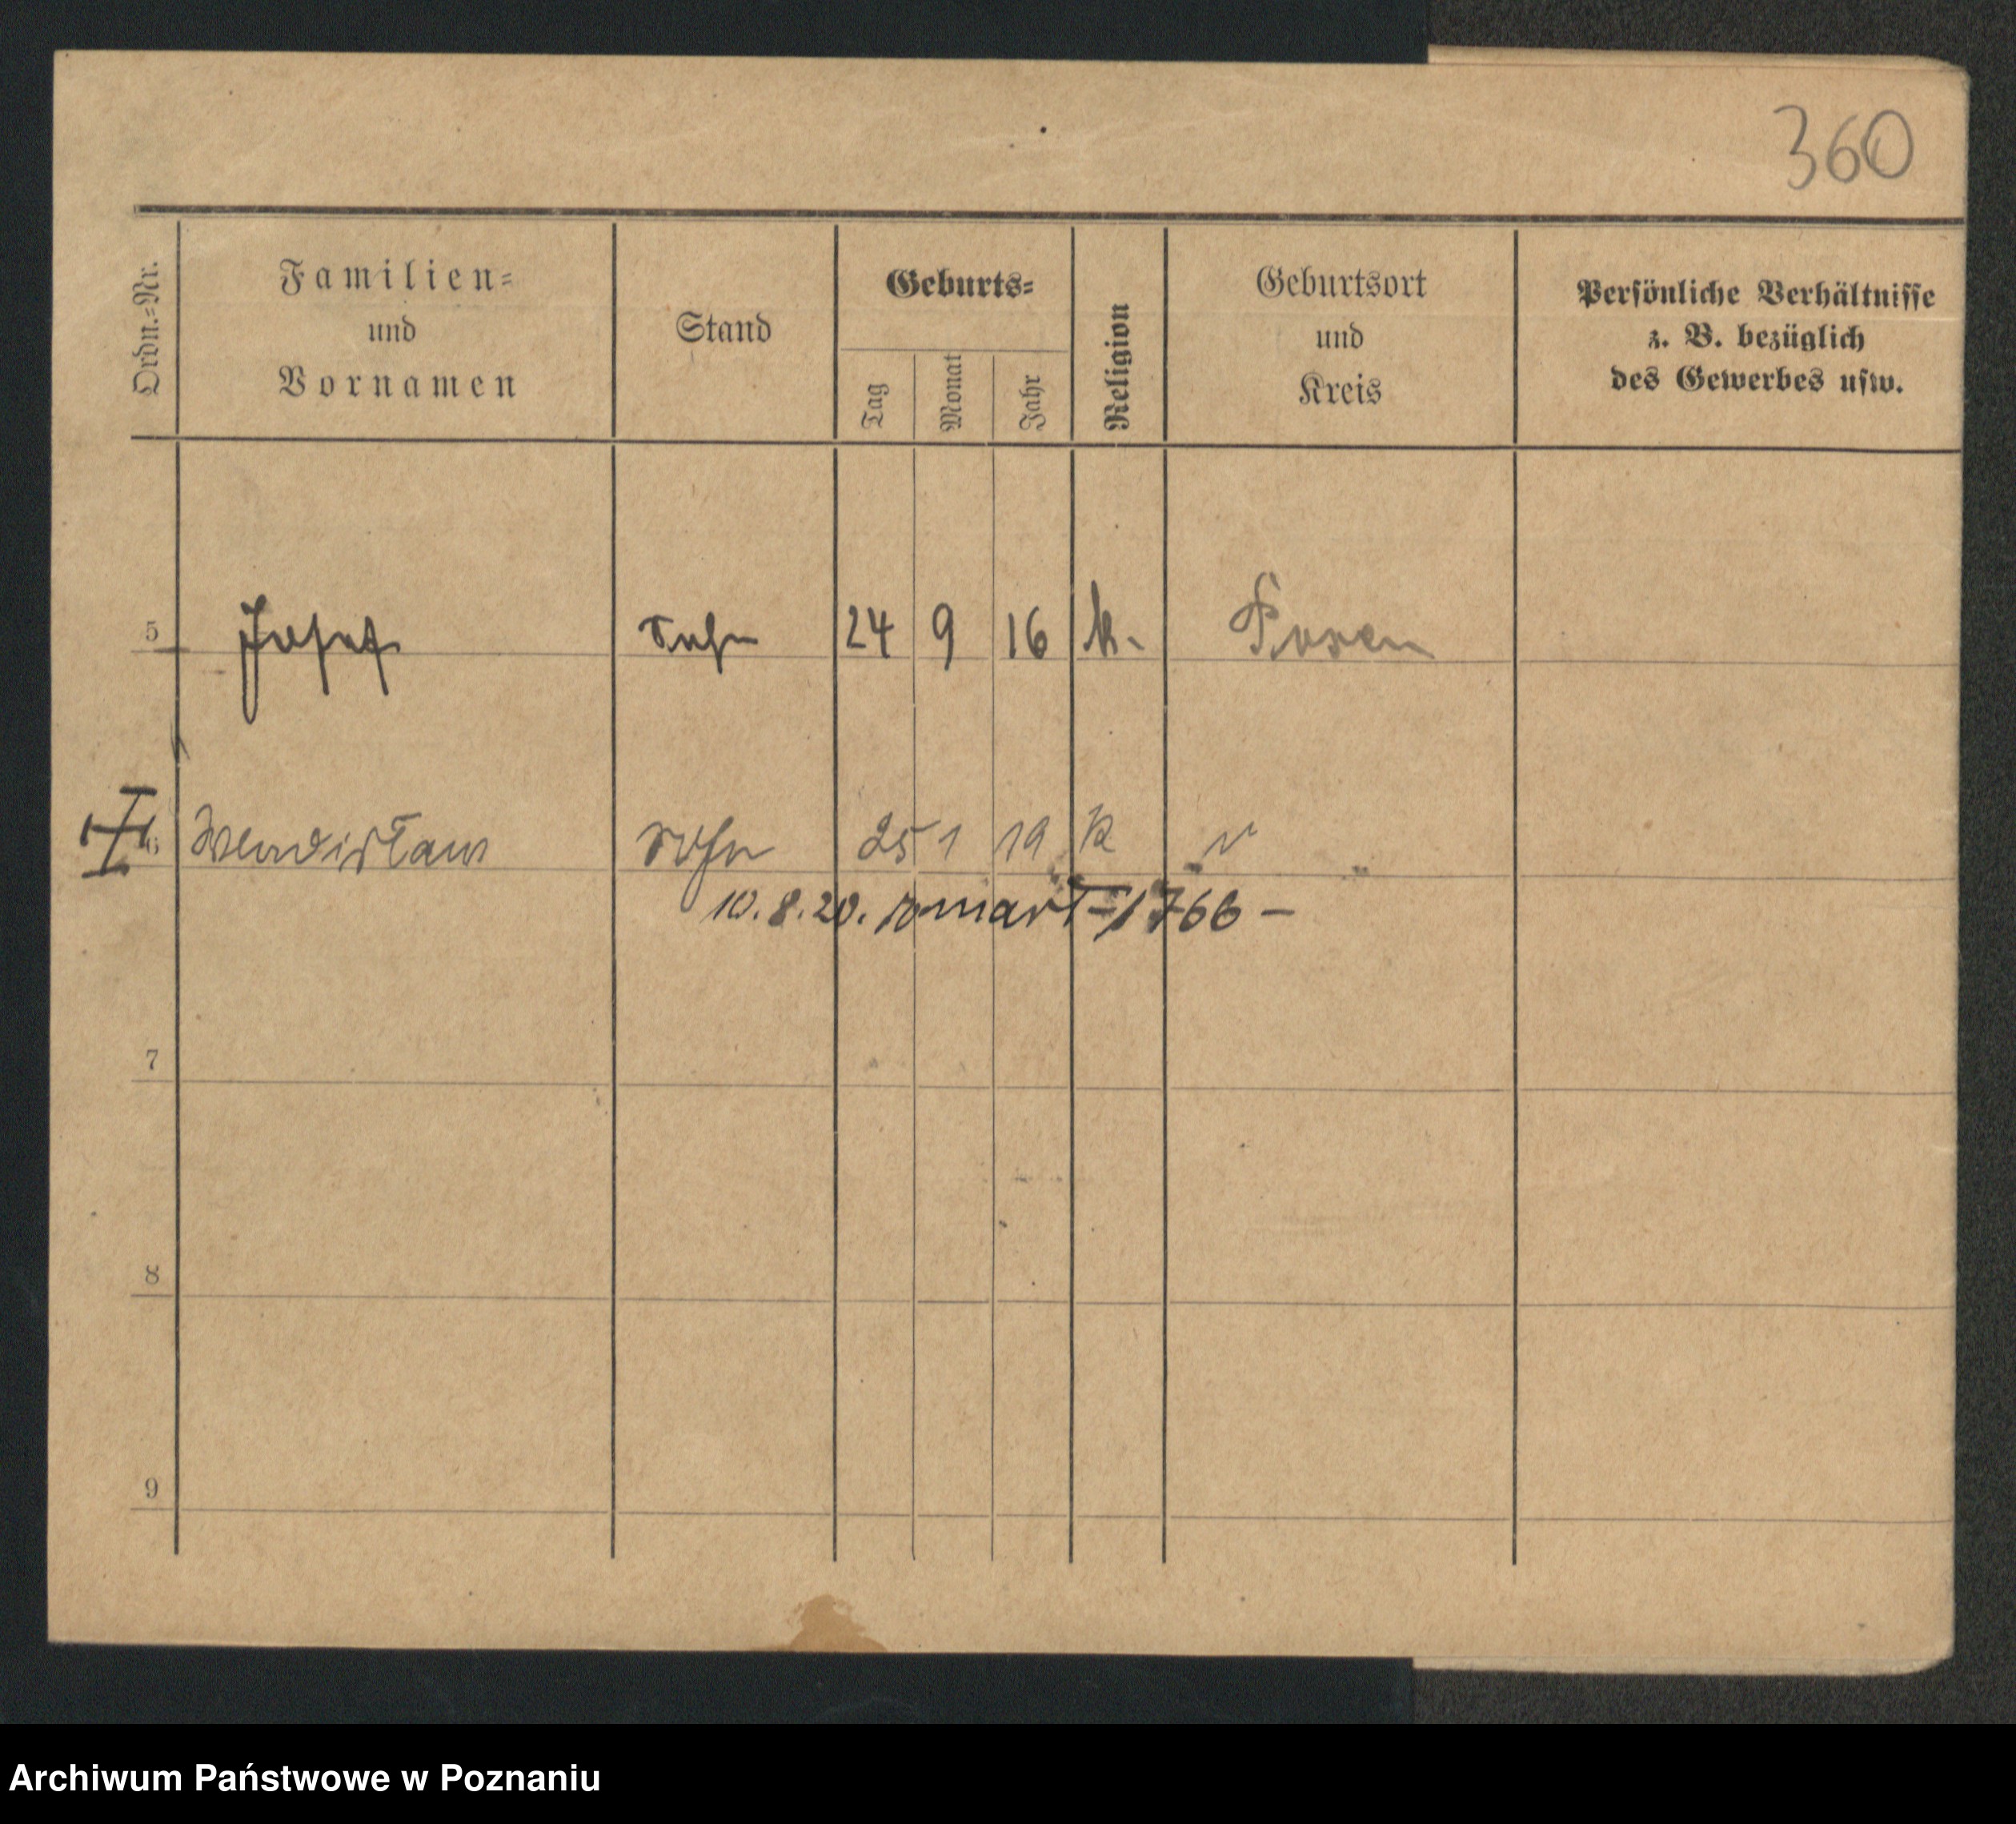 360
Ordn.=Nr.
Familien=
und
Vornamen
Stand
Geburts=
Tag
Monat
Jahr
Religion
Geburtsort
und
Kreis
Persönliche Verhältnisse
z. B. bezüglich
des Gewerbes usw.
5 Josef Sohn 24 9 16 k. Posen
6 Wladislaus Sohn 25 1 19 k "
10.8.20. zmarł 1766 –
7
8
9
Archiwum Państwowe w Poznaniu